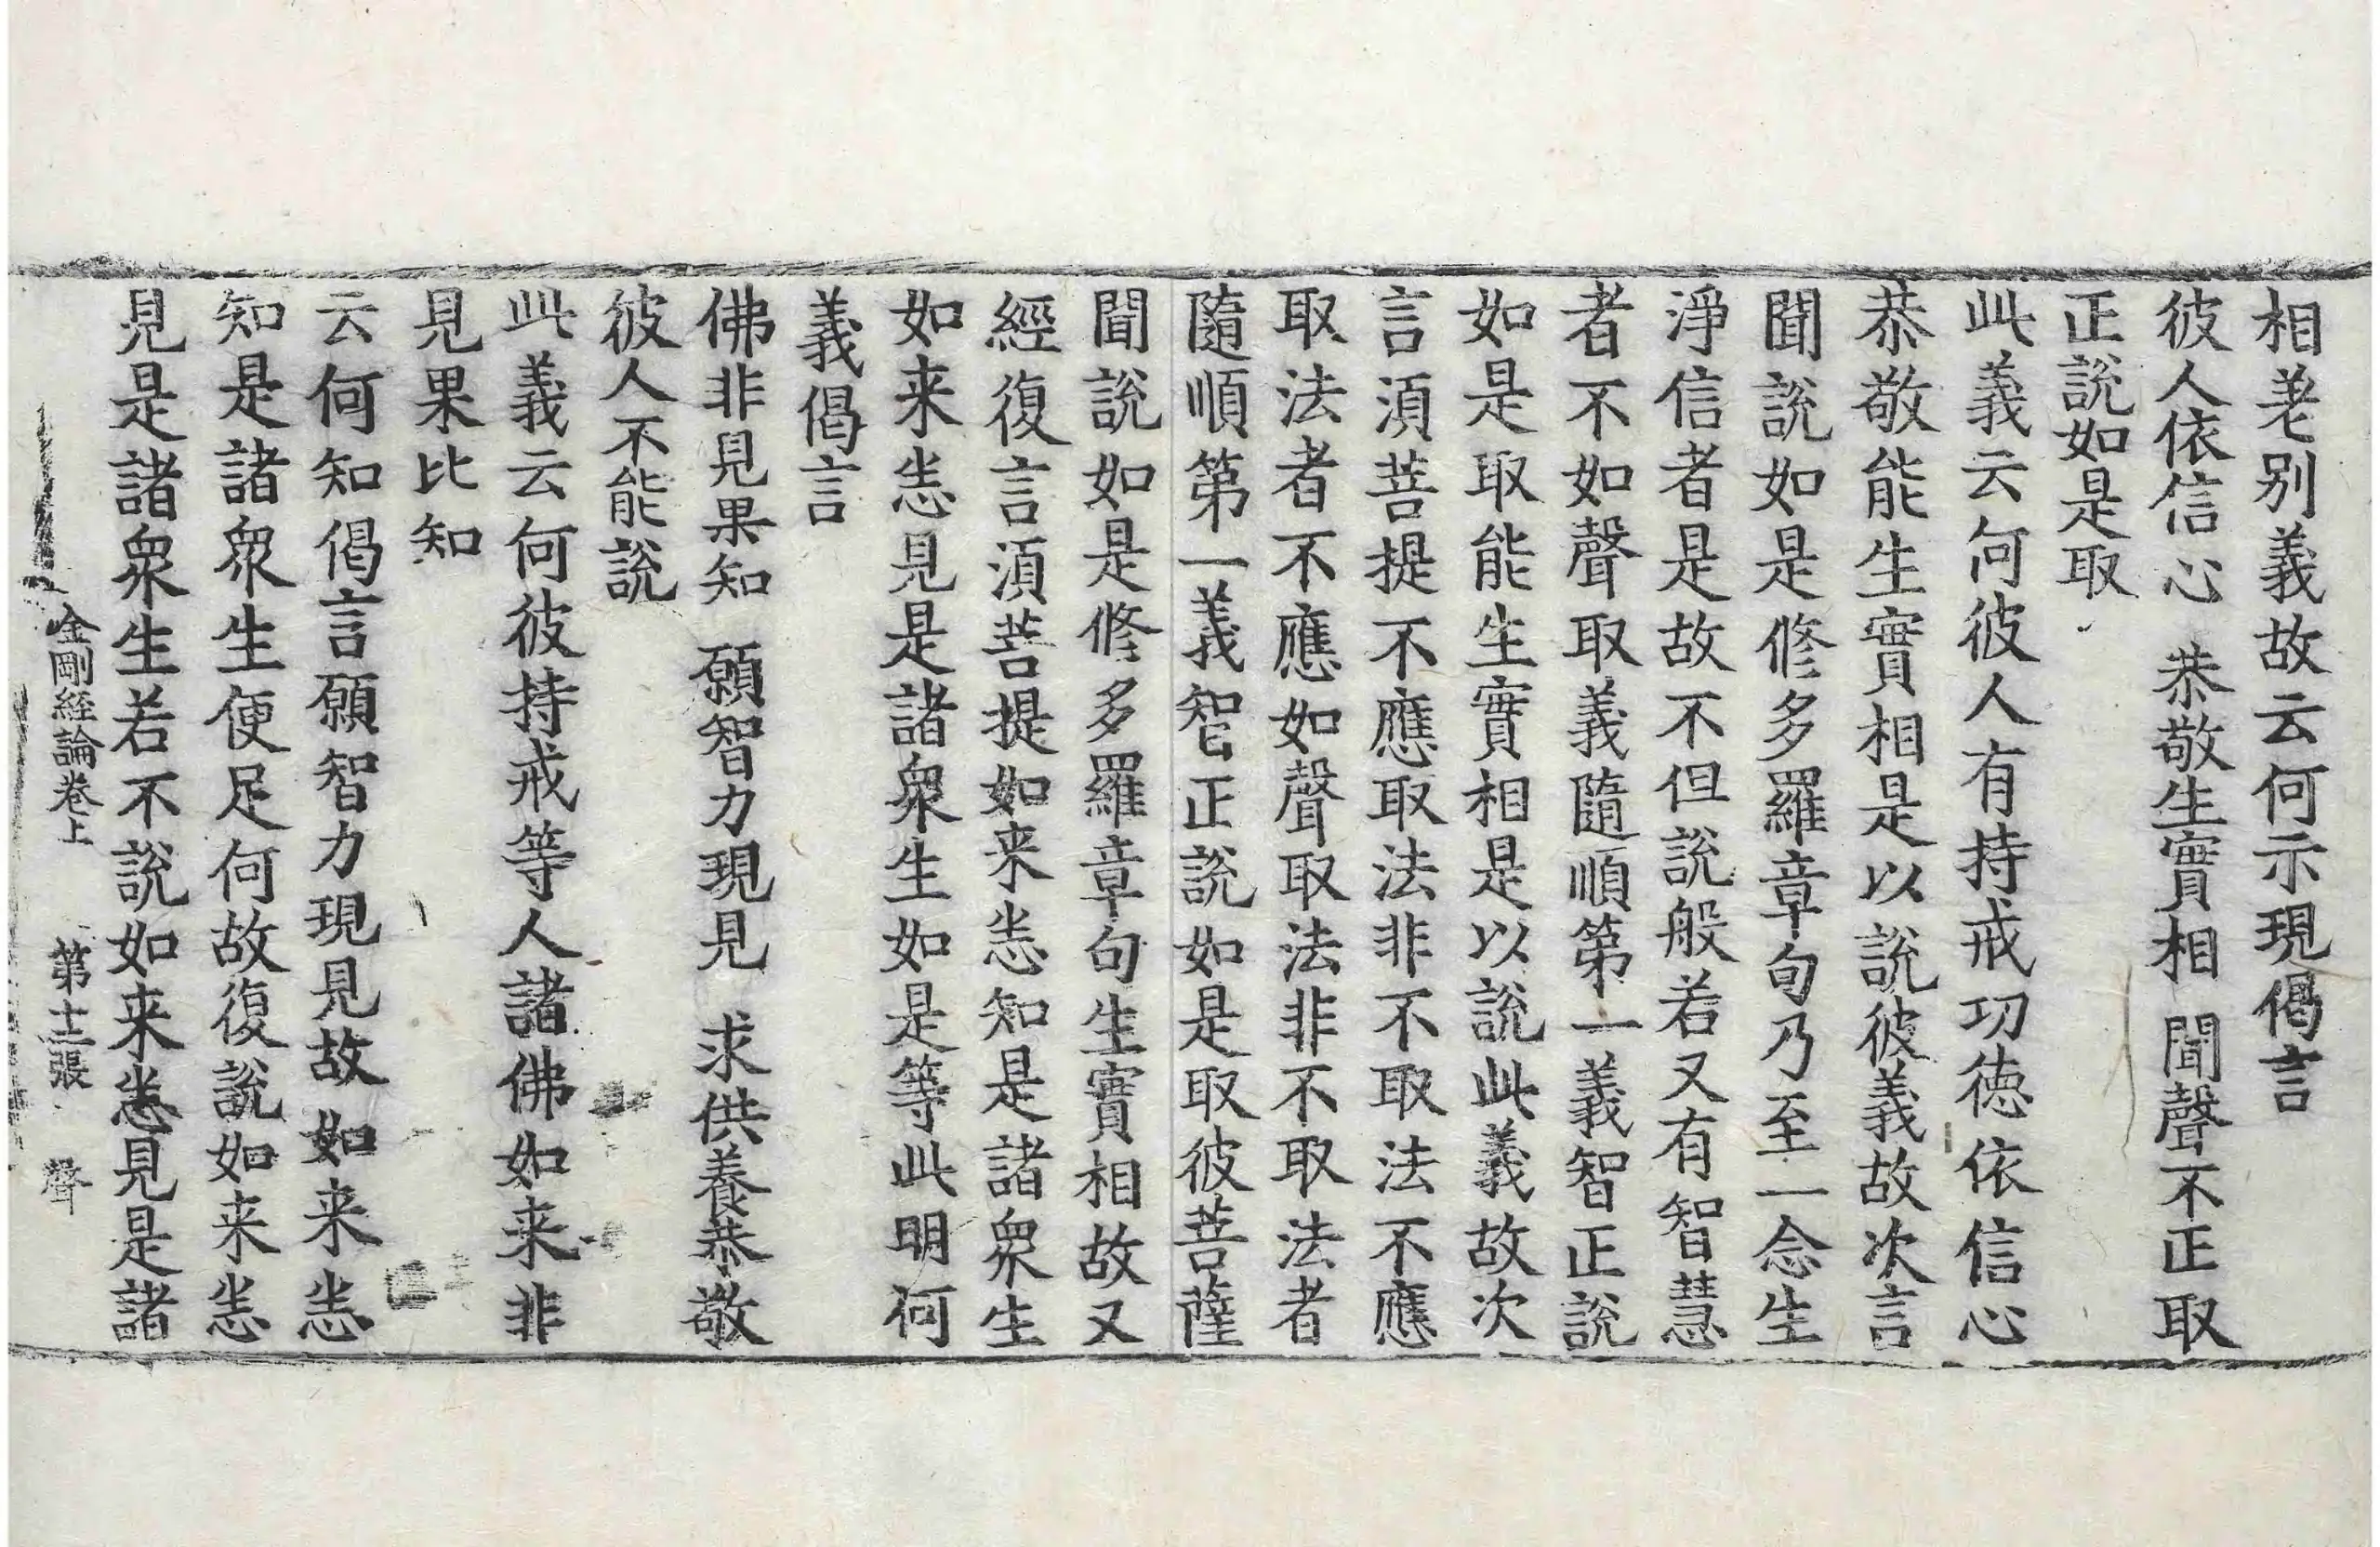 相差别義故云何示現偈言
彼人依信心　恭敬生實相　聞聲不正取
正說如是取
此義云何彼人有持戒功徳依信心
恭敬能生實相是以說彼義故次言
聞說如是修多羅章句乃至一念生
淨信者是故不但說般若又有智慧
者不如聲取義隨順第一義智正說
如是取能生實相是以說此義故次
言湏菩提不應取法非不取法不應
取法者不應如聲取法非不取法者
隨順第一義智正說如是取彼菩薩
聞說如是修多羅章句生實相故又
經復言湏菩提如来悉知是諸衆生
如来悉見是諸衆生如是等此明何
義偈言
佛非見果知　願智力現見　求供養恭敬
彼人不能說
此義云何彼持戒等人諸佛如来非
見果比知
云何知偈言願智力現見故如来悉
知是諸衆生便足何故復說如来悉
見是諸衆生若不說如来悉見是諸
金剛経論卷上　第十二張　聲